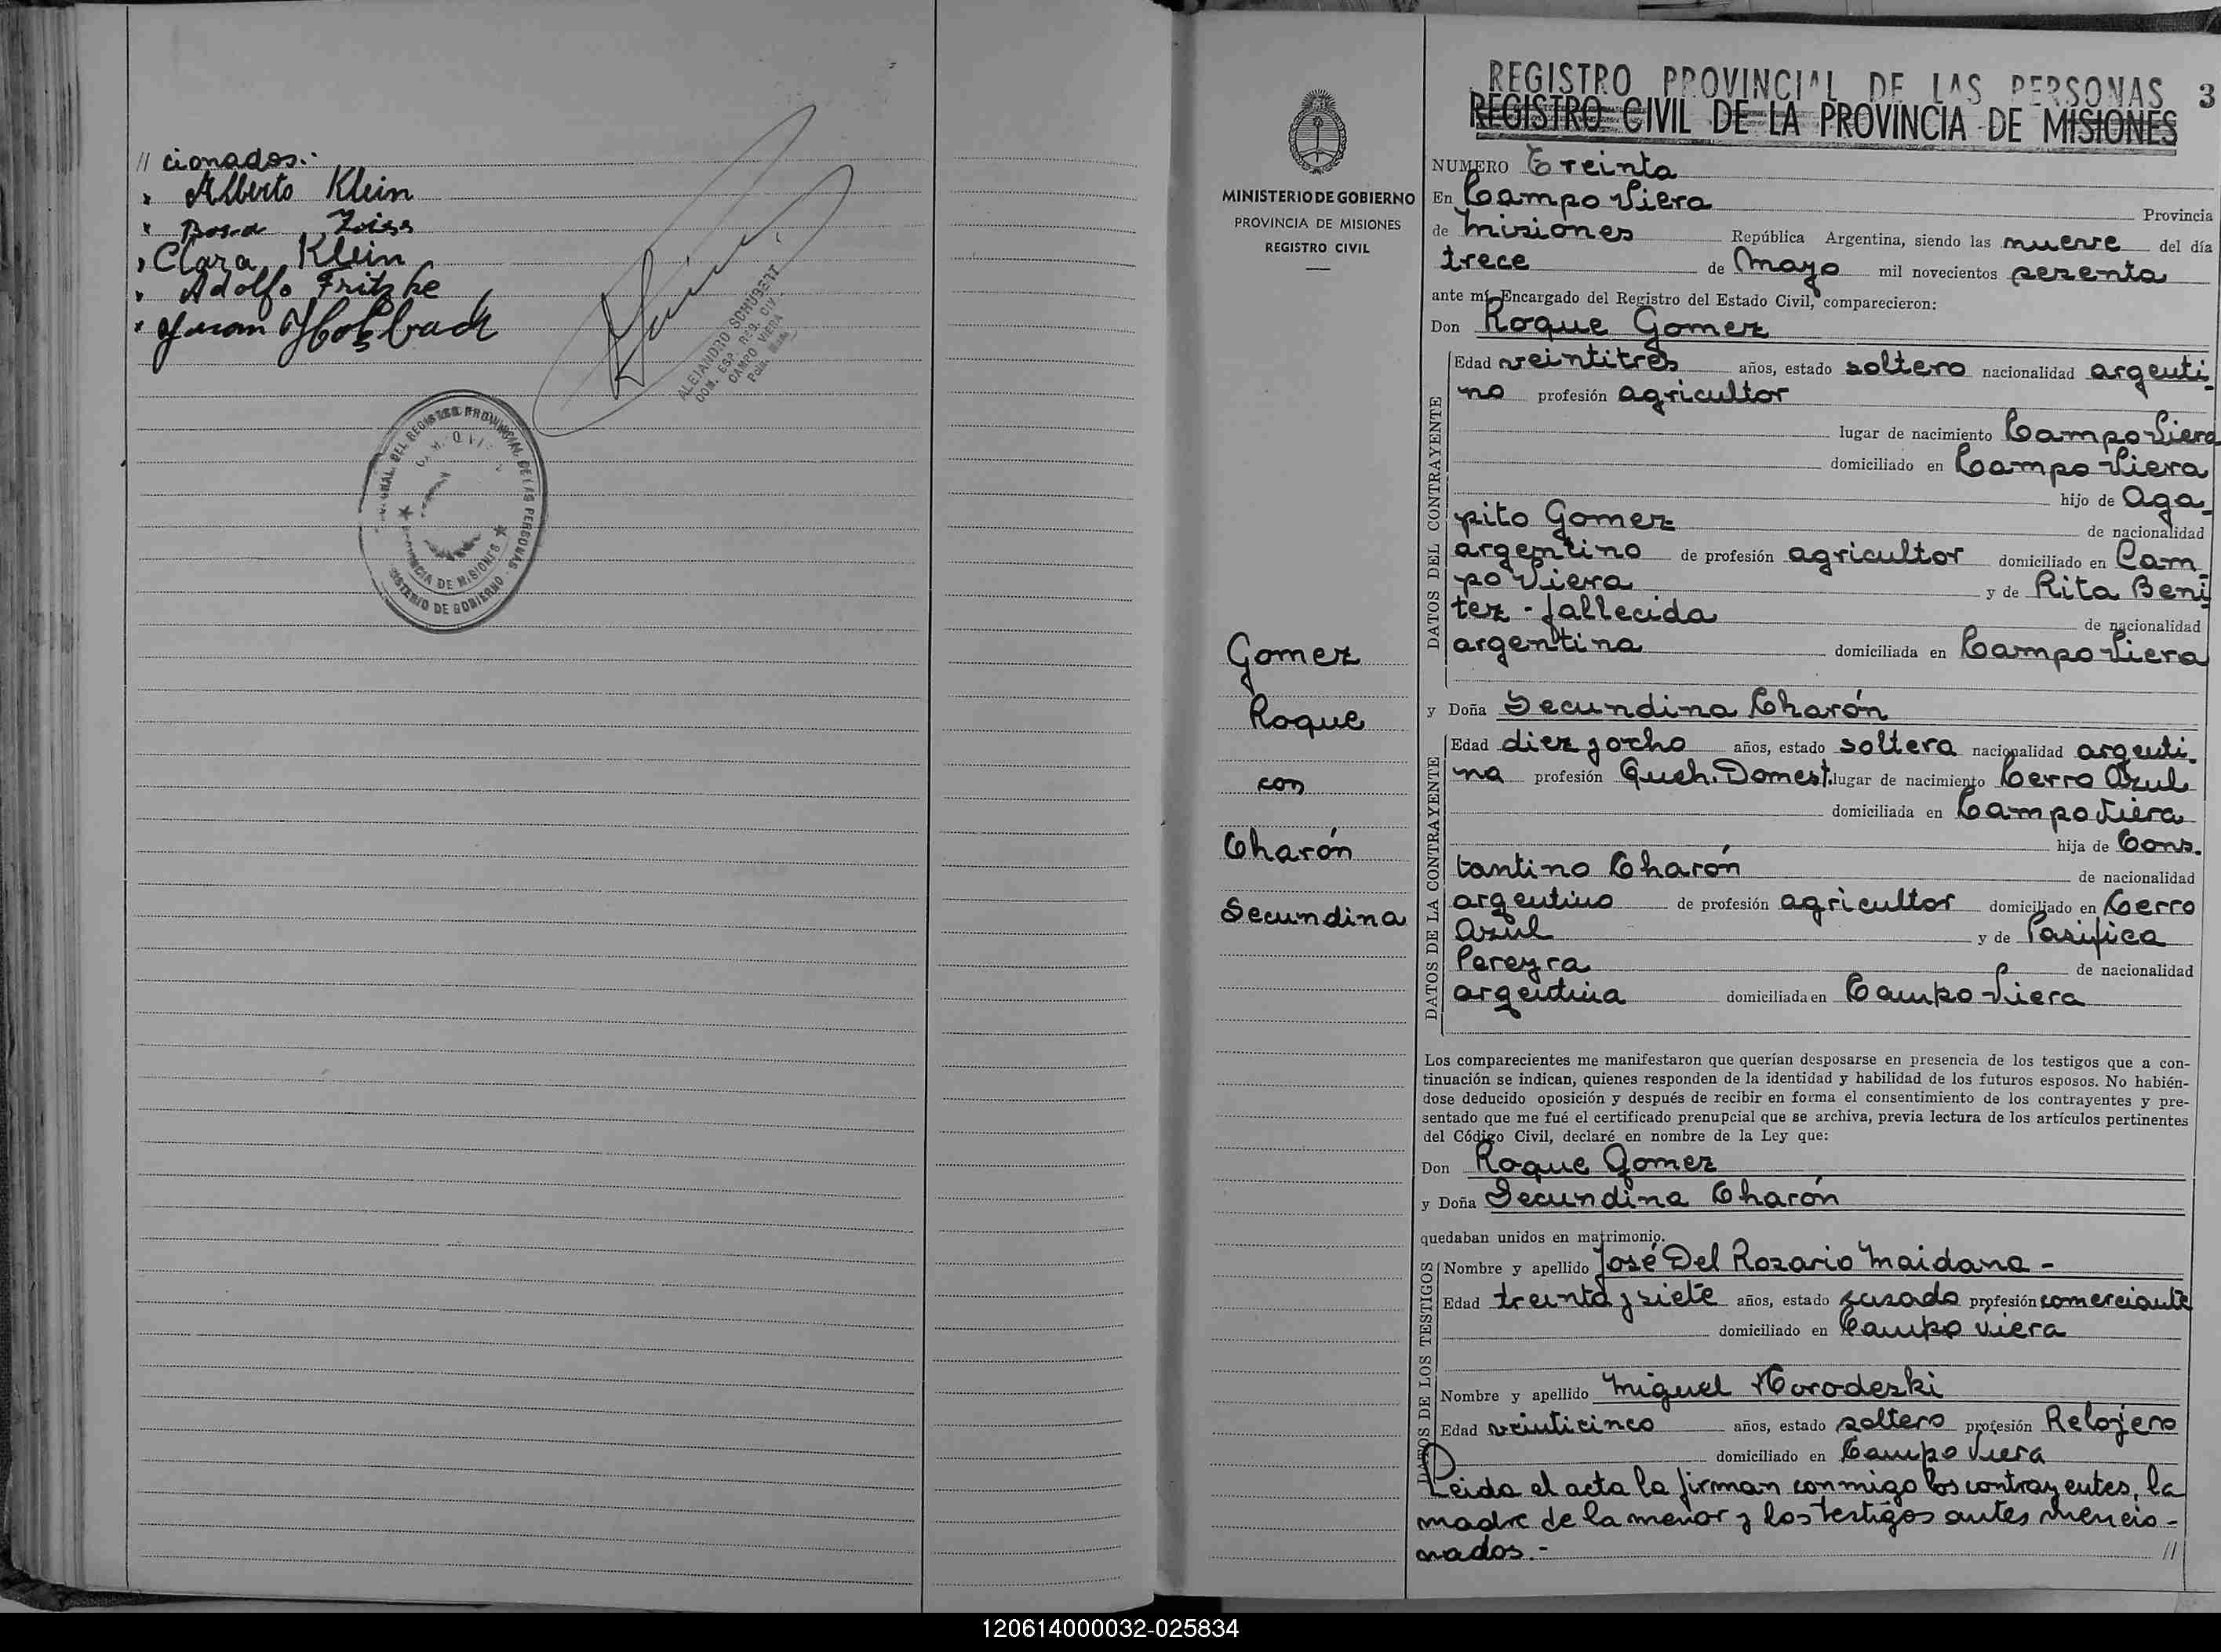 // cionados.-
x Alberto Klein
x Zoiss
x Clara Klein
x Adolfo Fritzke
x Juan
ALEJANDRO SCHUBERT
CAMPO VIERA
DEL REGISTRO PROVINCIAL DE LAS PERSONAS
DE MISIONES
DE GOBIERNO
REGISTRO PROVINCIAL DE LAS PERSONAS 3
REGISTRO CIVIL DE LA PROVINCIA DE MISIONES
MINISTERIO DE GOBIERNO
PROVINCIA DE MISIONES
REGISTRO CIVIL
Gomez
Roque
con
Charón
Secundina
NUMERO Treinta
En Campo Viera Provincia
de Misiones República Argentina, siendo las nueve del día
trece de Mayo mil novecientos sesenta
ante mí, Encargado del Registro del Estado Civil, comparecieron:
Don Roque Gomez
DATOS DEL CONTRAYENTE
Edad veintitres años, estado soltero nacionalidad argenti-
no profesión agricultor
lugar de nacimiento Campo Viera
domiciliado en Campo Viera
hijo de Aga-
pito Gomez de nacionalidad
argentino de profesión agricultor domiciliado en Cam-
po Viera y de Rita Beni-
tez - fallecida de nacionalidad
argentina domiciliada en Campo Viera
y Doña Secundina Charón
DATOS DE LA CONTRAYENTE
Edad diez y ocho años, estado soltera nacionalidad argenti-
na profesión Queh. Domest. lugar de nacimiento Cerro Azul
domiciliada en Campo Viera
hija de Cons-
tantino Charón de nacionalidad
argentino de profesión agricultor domiciliado en Cerro
Azul y de Pasifica
Pereyra de nacionalidad
argentina domiciliada en Campo Viera
Los comparecientes me manifestaron que querían desposarse en presencia de los testigos que a con-
tinuación se indican, quienes responden de la identidad y habilidad de los futuros esposos. No habién-
dose deducido oposición y después de recibir en forma el consentimiento de los contrayentes y pre-
sentado que me fué el certificado prenupcial que se archiva, previa lectura de los artículos pertinentes
del Código Civil, declaré en nombre de la Ley que:
Don Roque Gomez
y Doña Secundina Charón
quedaban unidos en matrimonio.
DATOS DE LOS TESTIGOS
Nombre y apellido José Del Rozario Maidana -
Edad treinta y siete años, estado casado profesión comerciante
domiciliado en Campo Viera
Nombre y apellido Miguel Horodeski
Edad veinticinco años, estado soltero profesión Relojero
domiciliado en Campo Viera
Leida el acta la firman conmigo los contrayentes, la
madre de la menor y los testigos antes mencio-
nados.- //
120614000032-025834